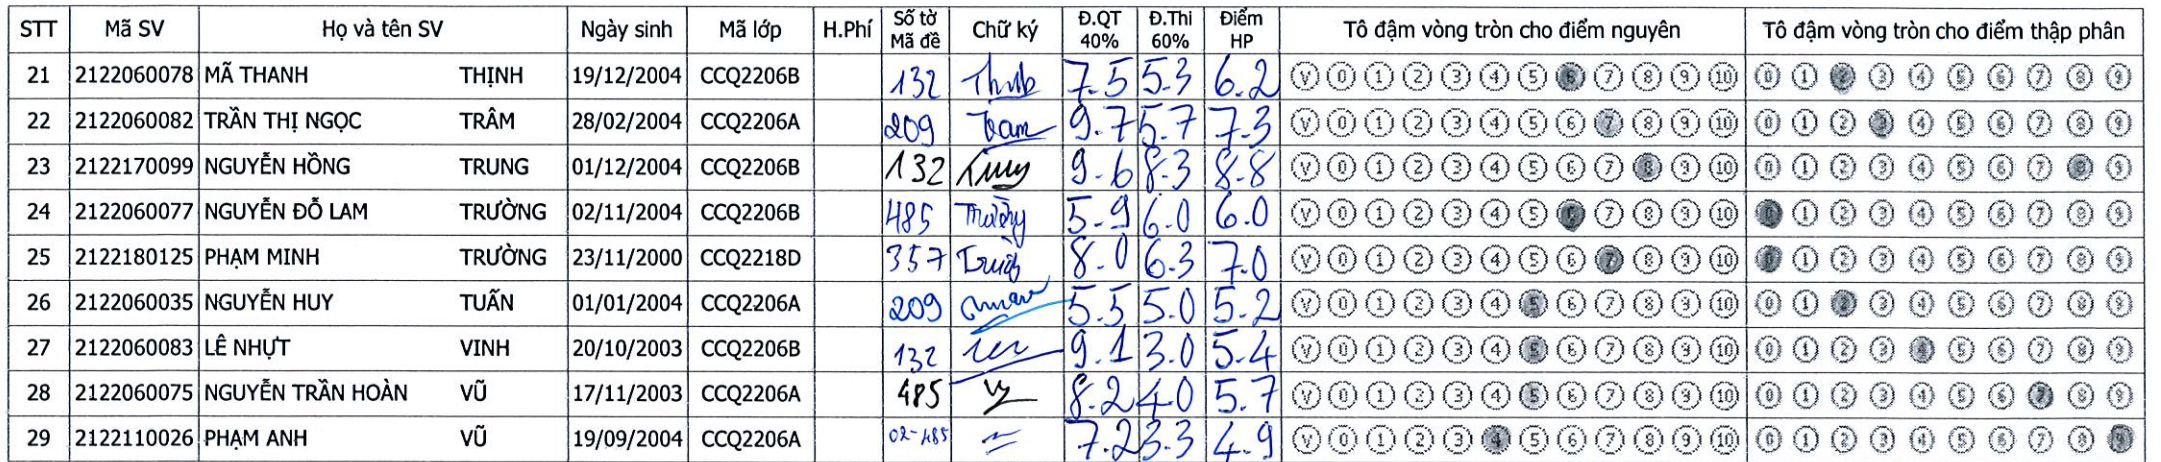 STT Mã SV Họ và tên SV Ngày sinh Mã lớp H.Phí Số tờ Mã đề Chữ ký Đ.QT 40% Đ.Thi 60% Điểm HP Tô đậm vòng tròn cho điểm nguyên Tô đậm vòng tròn cho điểm thập phân
21 2122060078 MÃ THANH THỊNH 19/12/2004 CCQ2206B 132 7.5 5.3 6.2 V 0 1 2 3 4 5 6 7 8 9 10 0 1 2 3 4 5 6 7 8 9
22 2122060082 TRẦN THỊ NGỌC TRÂM 28/02/2004 CCQ2206A 209 Tram 9.7 5.7 7.3 V 0 1 2 3 4 5 6 7 8 9 10 0 1 2 3 4 5 6 7 8 9
23 2122170099 NGUYỄN HỒNG TRUNG 01/12/2004 CCQ2206B 132 9.6 8.3 8.8 V 0 1 2 3 4 5 6 7 8 9 10 0 1 2 3 4 5 6 7 8 9
24 2122060077 NGUYỄN ĐỖ LAM TRƯỜNG 02/11/2004 CCQ2206B 485 Trường 5.9 6.0 6.0 V 0 1 2 3 4 5 6 7 8 9 10 0 1 2 3 4 5 6 7 8 9
25 2122180125 PHẠM MINH TRƯỜNG 23/11/2000 CCQ2218D 357 8.0 6.3 7.0 V 0 1 2 3 4 5 6 7 8 9 10 0 1 2 3 4 5 6 7 8 9
26 2122060035 NGUYỄN HUY TUẤN 01/01/2004 CCQ2206A 209 5.5 5.0 5.2 V 0 1 2 3 4 5 6 7 8 9 10 0 1 2 3 4 5 6 7 8 9
27 2122060083 LÊ NHỰT VINH 20/10/2003 CCQ2206B 132 9.1 3.0 5.4 V 0 1 2 3 4 5 6 7 8 9 10 0 1 2 3 4 5 6 7 8 9
28 2122060075 NGUYỄN TRẦN HOÀN VŨ 17/11/2003 CCQ2206A 485 8.2 4.0 5.7 V 0 1 2 3 4 5 6 7 8 9 10 0 1 2 3 4 5 6 7 8 9
29 2122110026 PHẠM ANH VŨ 19/09/2004 CCQ2206A 02-485 7.2 3.3 4.9 V 0 1 2 3 4 5 6 7 8 9 10 0 1 2 3 4 5 6 7 8 9